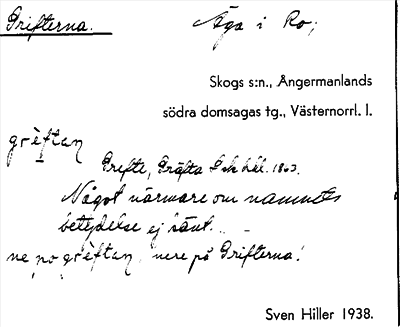 Grifterna. Äga i Ro;
Skogs s:n., Ångermanlands
södra domsagas tg., Västernorrl. l.
grèftan
Grefte, Gräfta 1863.
Något närmare om namnets
betydelse ej känt.
ne po grèftan, "nere på Grifterna".
Sven Hiller 1938.